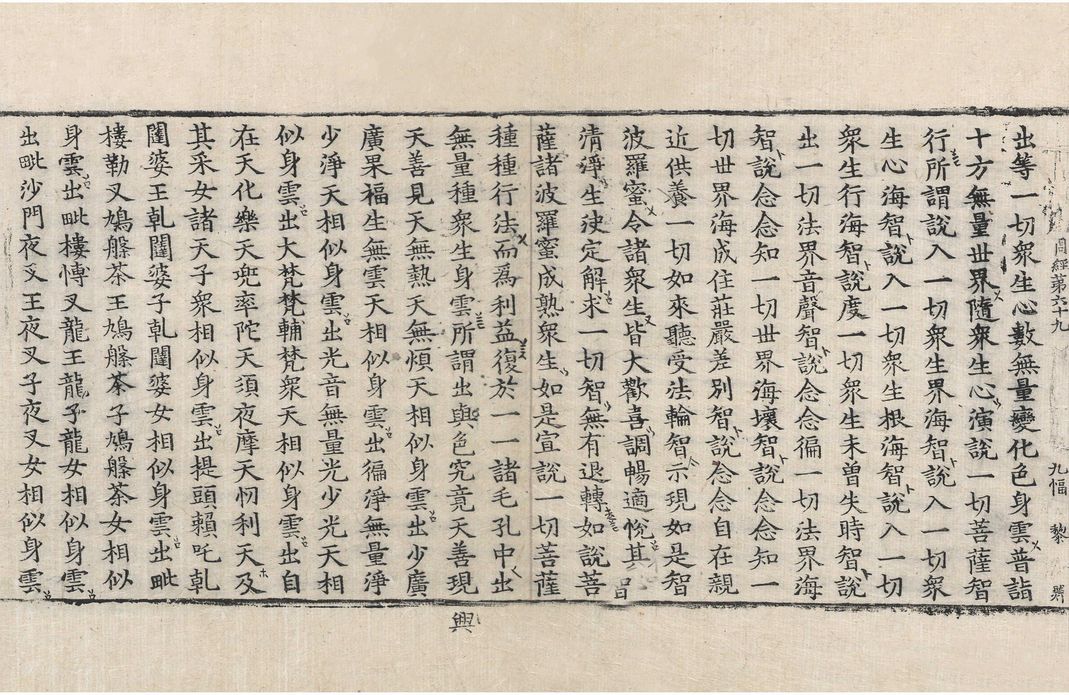 經第六十九 九幅 黎
出等一切衆生心數無量變化色身雲普詣
十方無量世界隨衆生心演說一切菩薩智
行所謂說入一切衆生界海智說入一切衆
生心海智說入一切衆生根海智說入一切
衆生行海智說度一切衆生未曾失時智說
出一切法界音聲智說念念徧一切法界海
智說念念知一切世界海壞智說念念知一
切世界海成住莊嚴差別智說念念自在親
近供養一切如來聽受法輪智示現如是智
波羅蜜令諸衆生皆大歡喜調暢適悅其
清淨生决定解求一切智無有退轉如說菩
薩諸波羅蜜成熟衆生如是宣說一切菩薩
種種行法而爲利益復於一一諸毛孔中出
無量種衆生身雲所謂出與色究竟天善現
與
天善見天無熱天無煩天相似身雲出少廣
廣果福生無雲天相似身雲出徧淨無量淨
少淨天相似身雲出光音無量光少光天相
似身雲出大梵梵輔梵衆天相似身雲出自
在天化樂天兜率陀天須夜摩天忉利天及
其采女諸天子衆相似身雲出提頭賴吒乹
闥婆王乹闥婆子乹闥婆女相似身雲出毗
樓勒叉鳩槃茶王鳩槃茶子鳩槃茶女相似
身雲出毗樓愽叉龍王龍子龍女相似身雲
出毗沙門夜叉王夜叉子夜叉女相似身雲